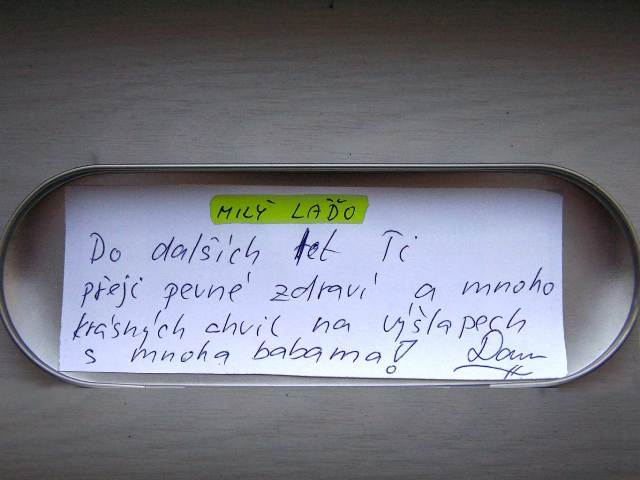 MILÝ LAĎO
Do dalších let Ti
přeji pevné zdraví a mnoho
krásných chvil na výšlapech
s mnoha babama!